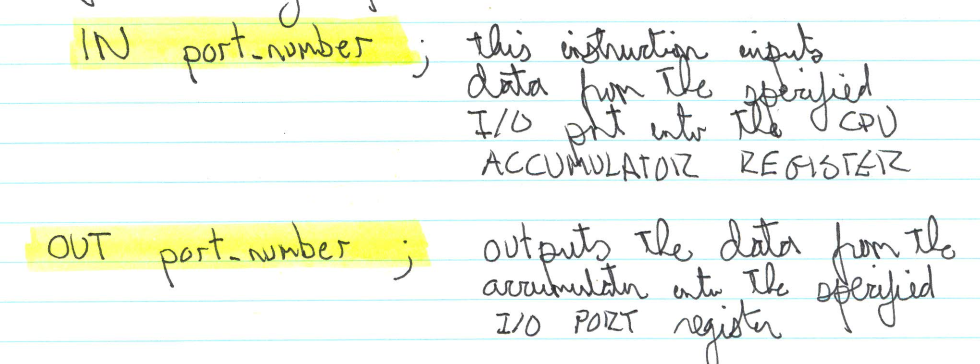 IN port_number ; this instruction inputs
data from the specified
I/O port into the CPU
ACCUMULATOR REGISTER
OUT port_number ; outputs the data from the
accumulator into the specified
I/O PORT register